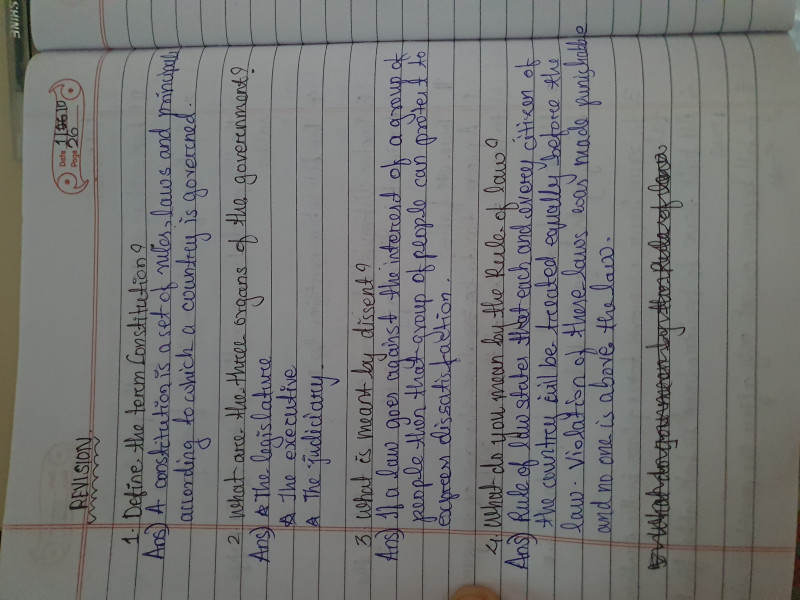 SHINE
Date
Page 26
REVISION.
1. Define the term Constitution?
Ans) A constitution is a set of rules, laws and principals
according to which a country is governed.
2. What are the three organs of the government?
Ans) ★ The legislature
★ The executive
★ The judiciary.
3. What is meant by dissent?
Ans) If a law goes against the interest of a group of
people then that group of people can protest to
express dissatisfaction.
4. What do you mean by the Rule of law?
Ans) Rule of law states that each and every citizen of
the country will be treated equally before the
law. Violation of these laws was made punishable
and no one is above the law.
What do you mean by the Rule of law